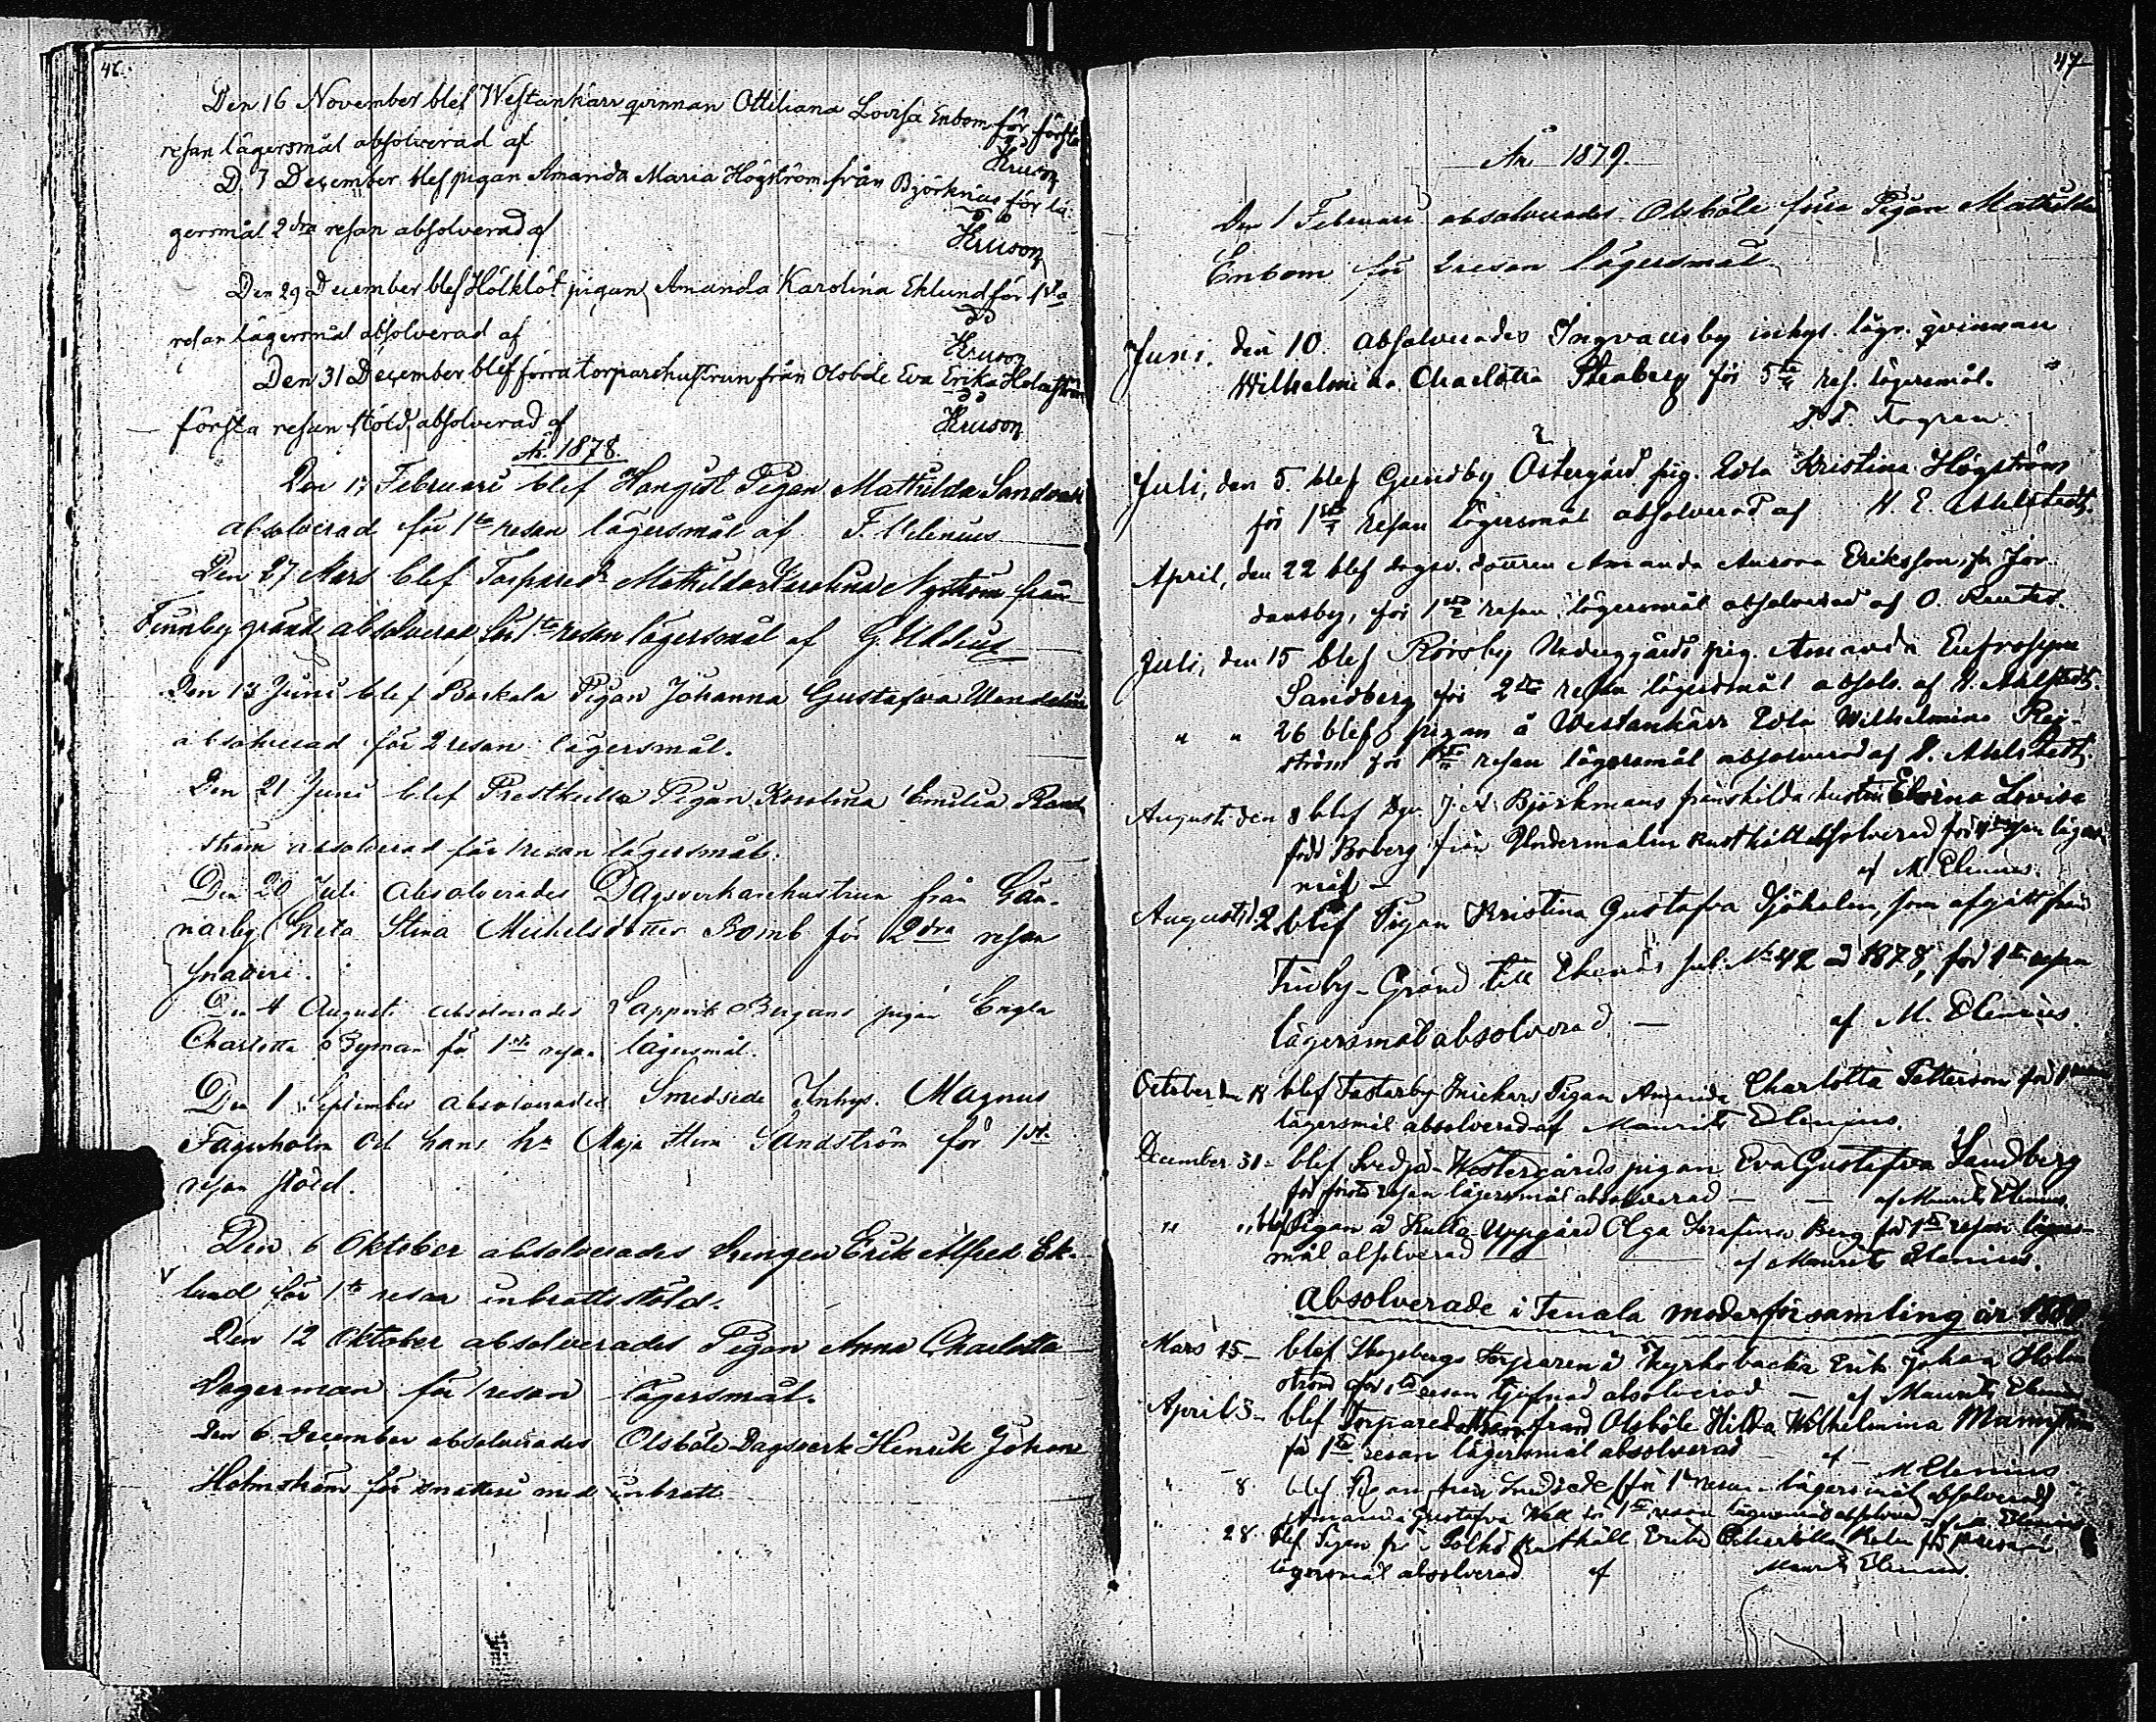 46.
Den 16 November blef Westankärr qvinnan Ottiliana Lovisa Enbom för första
resan lägersmål absolverad af Kruson
D. 7 December blef pigan Amanda Maria Högström från Björknäs för lä-
gersmål 2dra resan absolverad af Kruson
Den 29 December blef Hölklöt pigan Amanda Karolina Eklund för 1sta
resan lägersmål absolverad af Kruson
Den 31 December blef förra torparehustrun från Olsböle Eva Erika Holmström
första resan stöld, absolverad af Kruson
År 1878.
Den 17 Februari blef Hangist Pigan Mathilda
absolverad för 1sta resan lägersmål af F. Elenius
Den 27 Mars blef Torpared. Mathilda Karolina Nyström från
Finnby gränd absolverad för 1sta resan lägersmål af G.
Den 13 Juni blef Barkala Pigan Johanna Gustafva
absolverad för 2 resan lägersmål.
Den 21 Juni blef Prestkulla Pigan Karolina Emilia Rand
ström absolverad för 1 resan lägersmål.
Den 20 Juli absolverades Dagsverkarehustrun från Gun-
narby Greta Stina Michelsdotter Bomb för 2dra resan
snatteri.
Den 4 Augusti absolverades Lappvik Bergans pigan Engla
Charlotta Byman för 1sta resan lägersmål.
Den 1 September absolverades Smedsede Inhys. Magnus
Fagerholm och hans hu Maja Stina Sandström för 1sta
resan stöld.
Den 6 Oktober absolverades Drengen Erik Alfred Ek-
lund för 1sta resan inbrottsstöld.
Den 12 Oktober absolverades Pigan Anna Charlotta
Dagerman för 1 resan lägersmål.
Den 6 December absolverades Olsböle Dagsverk Henrik Johan
Holmström för snatteri med inbrott
47
År 1879.
Den 1 Februari absolverades Olsböle förra Pigan Mathilda
Enbom för 2 resan lägersmål
Juni den 10. absolverades Ingvallsby inhys. lägr. qvinnan
Wilhelmina Charlotta Stenberg för 5te res. lägersmål.
Juli, den 5. blef Gundby Östergård pig. Edla Kristina Högström
för 1sta resan lägersmål absolverad af A. E. Ahlstedt.
April, den 22 blef dagsv. dottren Amanda Aurora Eriksson, fr. Jor-
dansby, för 1sta resan lägersmål absolverad af O.
Juli, den 15 blef Rörsby Nedergårds pig. Amanda Eufrosyne
Sandberg för 2dra resan lägersmål absolv. af A. Ahlstedt.
" " 26 blef pigan å Westankärr Edla Wilhelmina Rej-
ström för 1sta resan lägersmål absolverad af A. Ahlstedt.
Augusti den 8 blef Dgv. J. A. Björkmans frånskilda hustru Lovisa
född Boberg från Undermalm rusthåll absolverad för resan lägers
mål – af M. Elenius.
Augusti d. 2 blef Pigan Kristina Gustafva Sjöholm, som afgått från
Trieby-Gränd till Ekenäs sub. No 42 ad 1878, för 1sta resan
lägersmål absolverad – af M. Elenius.
October den 18 blef Tastarby Snickars Pigan Amanda Charlotta Petterson för 1 resan
lägersmål absolverad af Maurits Elenius.
December 31 – blef Svedja-Westergårds pigan Eva Gustafva Sandberg
för första resan lägersmål absolverad – – af Maurits Elenius.
" " blef Pigan å Kulla-Uppgård Olga Josefina Berg för 1sta resan lägers-
mål absolverad – af Maurits Elenius.
Absolverade i Tenala moderförsamling år 1880
Mars 15 – blef Skogsbergs torparen å Kyrkobacka Erik Johan Holm
ström för 1sta resan tjufnad absolverad – af Maurits Elenius
April 3 – blef Torparedottren från Olsböle Hilda Wilhelmina
för 1sta resan lägersmål absolverad – af – M. Elenius
" 8. blef från Smedsede för 1 resan lägersmål absolverad
Amanda Gustafva Wall för 1sta resan lägersmål absolverad af M. Elenius
" 28. blef Pigan rusthåll Charlotta för 1 resan
lägersmål absolverad af Maurits Elenius.